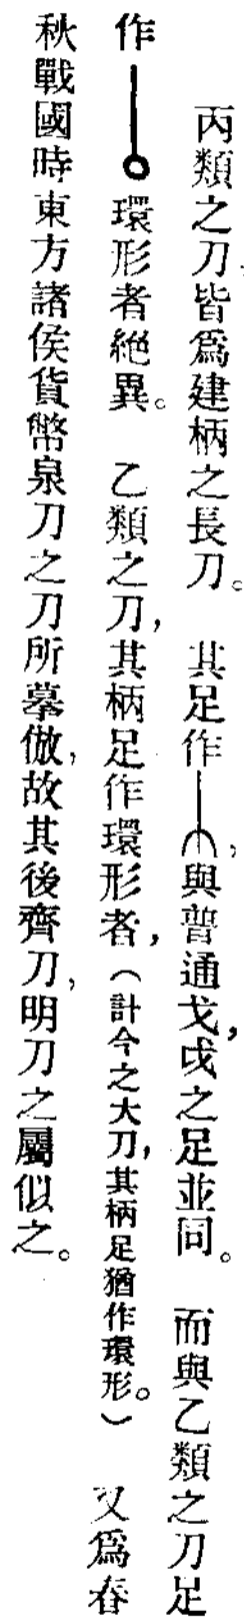 丙類之刀,皆爲建柄之長刀。其足作,與普通戈,戉之足並同。而與乙類之刀足
作環形者絕異。乙類之刀,其柄足作環形者,(計今之大刀,其柄足猶作環形。)又爲春
秋戰國時東方諸侯貨幣泉刀之刀所摹倣,故其後齊刀,明刀之屬似之。